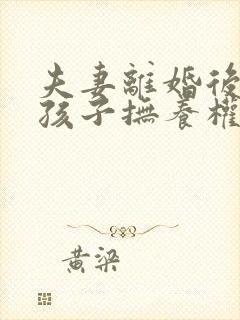 夫妻離婚後
孩子撫養權
黃梁